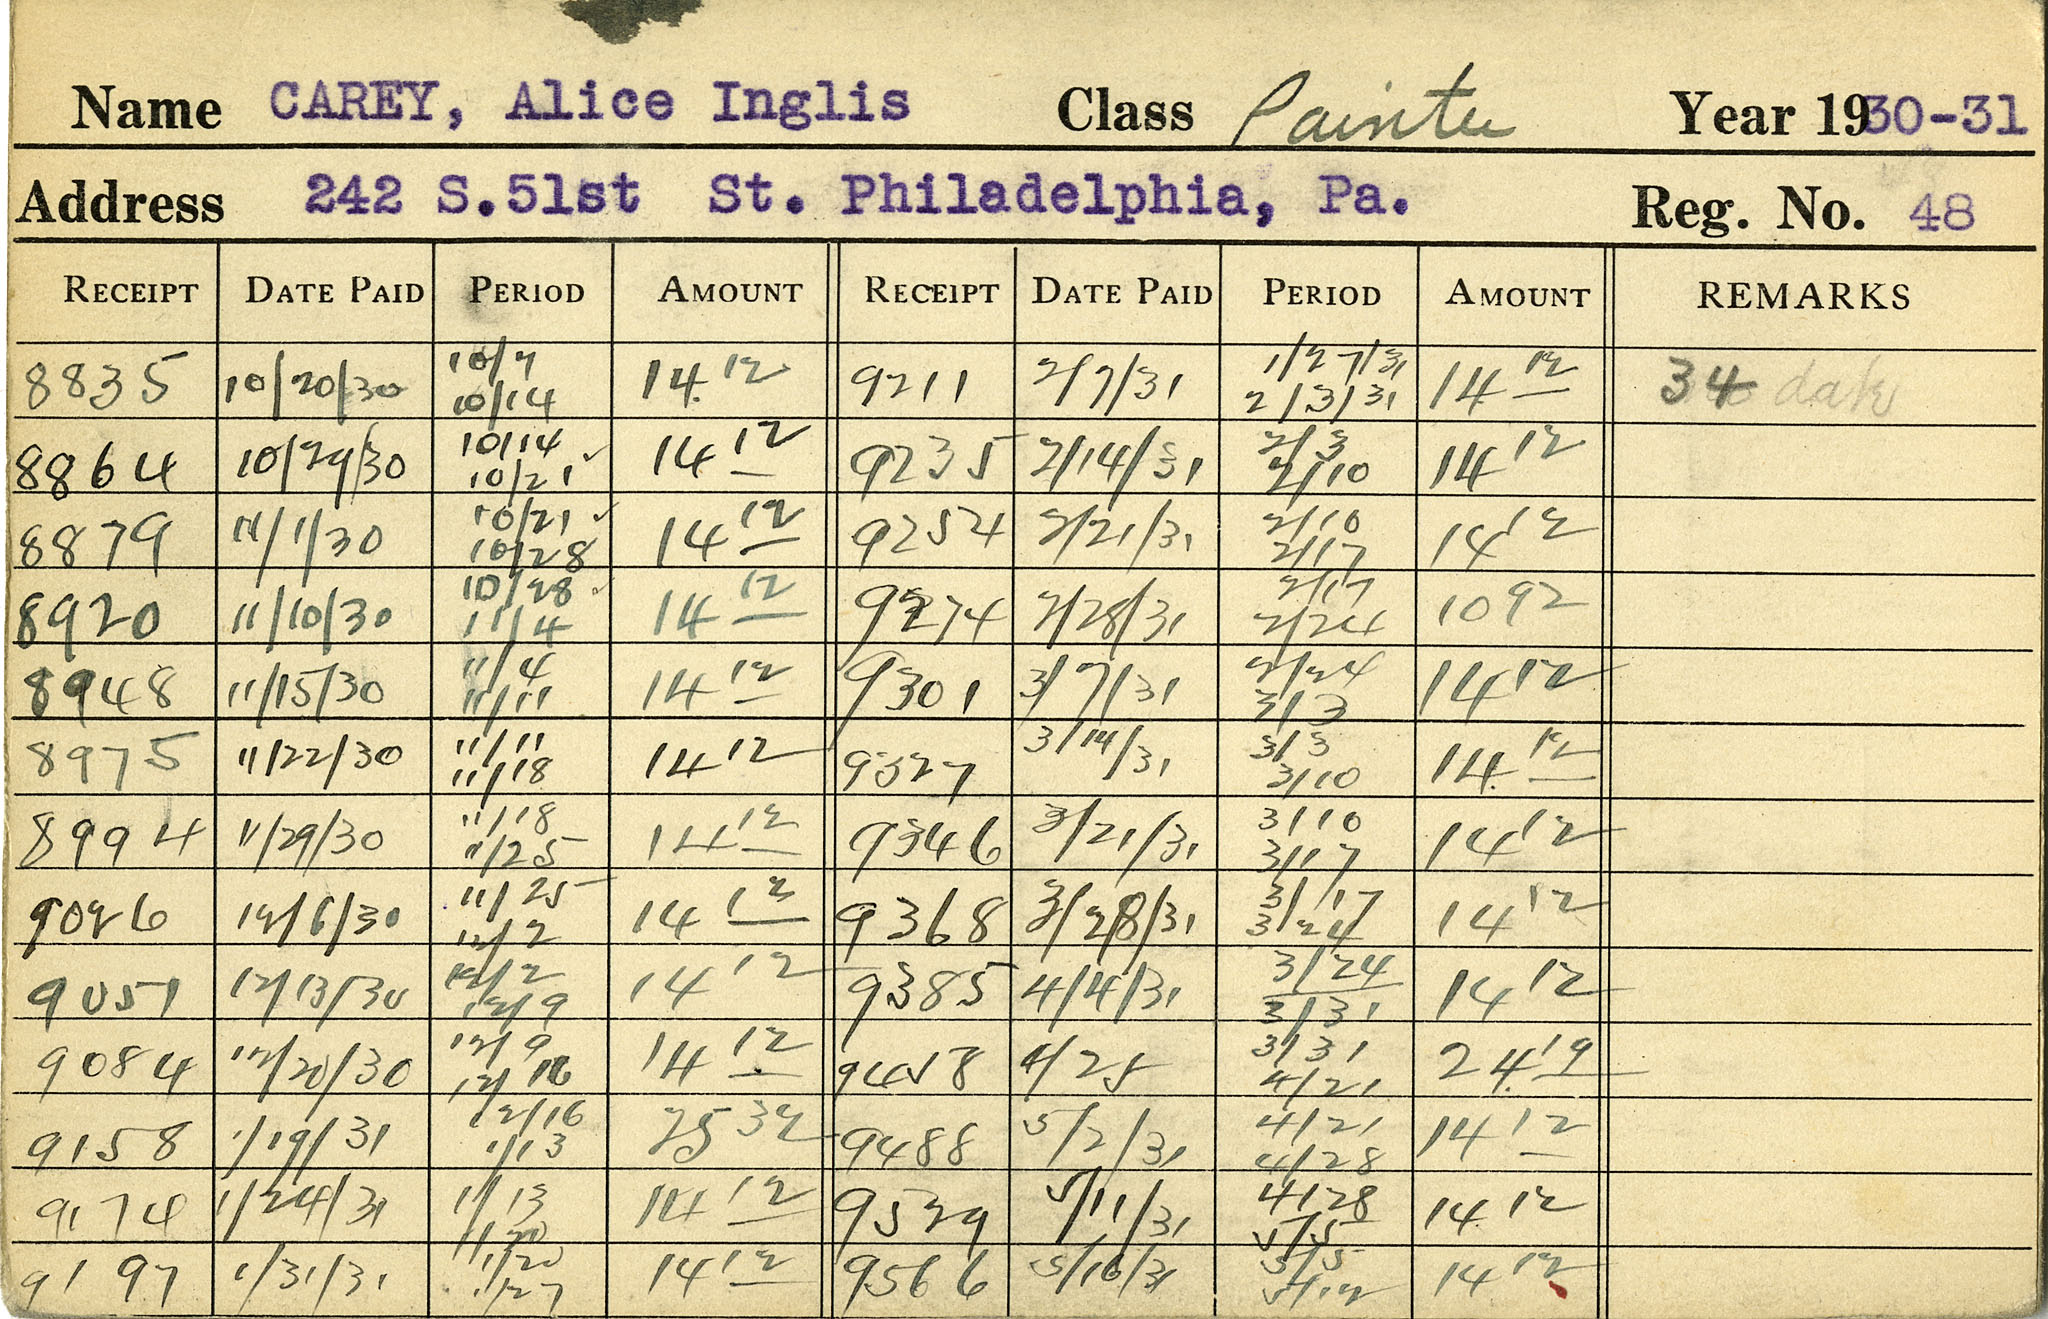 Name CAREY, Alice Inglis Class Painter Year 1930-31
Address 242 S.51st St. Philadelphia, Pa. Reg. No. 48
RECEIPT DATE PAID PERIOD AMOUNT RECEIPT DATE PAID PERIOD AMOUNT REMARKS
8835 10/20/30 10/7 10/14 14.12 9211 2/7/31 1/27/31 2/3/31 14 12 34 date
8864 10/29/30 10/14 10/21 14 12 9235 2/14/31 2/3 2/10 14 12
8879 11/1/30 10/21 10/28 14 12 9254 2/21/31 2/10 2/17 14 12
8920 11/10/30 10/28 11/4 14 12 9274 2/28/31 2/17 2/24 10 92
8948 11/15/30 11/4 11/11 14 12 9301 3/7/31 2/24 3/3 14 12
8975 11/22/30 11/11 11/18 14 12 9327 3/14/31 3/3 3/10 14.12
8994 11/29/30 11/18 11/25 14 12 9346 3/21/31 3/10 3/17 14 12
9026 12/6/30 11/25 12/2 14 12 9368 3/28/31 3/17 3/24 14 12
9051 12/13/30 12/2 12/9 14 12 9385 4/4/31 3/24 3/31 14 12
9084 12/20/30 12/9 12/16 14 12 9458 4/25 3/31 4/21 24.19
9158 1/19/31 12/16 1/13 25 32 9488 5/2/31 4/21 4/28 14 12
9174 1/24/31 1/13 1/20 14 12 9529 5/11/31 4/28 5/5 14.12
9197 1/31/31 1/20 1/27 14 12 9566 5/16/31 5/5 5/12 14 12